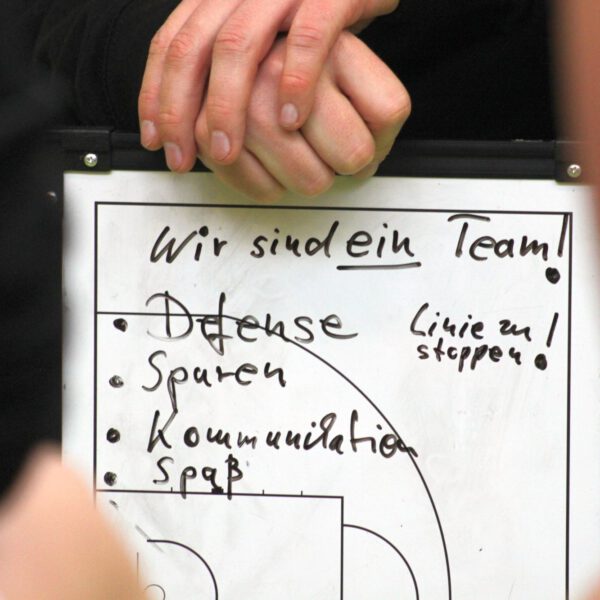 Wir sind ein Team!
• Defense
Linie zu
stoppen!
• Spuren
• Kommunikation
• Spaß